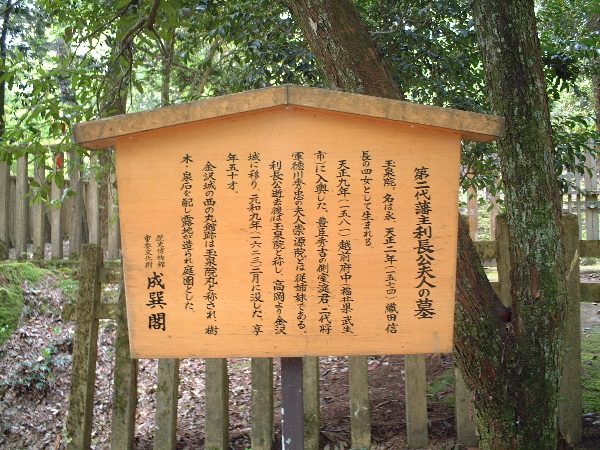 第二代藩主利長公夫人の墓
玉泉院、名は永 天正二年(一五七四)織田信
長の四女として生まれる。
天正九年(一五八一)越前府中(福井県武生
市)に入輿した。豊臣秀吉の側室淀君、二代将
軍徳川秀忠の夫人崇源院とは従姉妹である。
利長公逝去後は玉泉院と称し、高岡より金沢
城に移り、元和九年(一六二三)二月に没した。享
年五十才。
金沢城の西の丸館跡は玉泉院丸と称され、樹
木・泉石を配し露地が造られ庭園とした。
歴史博物館
重要文化財
成巽閣